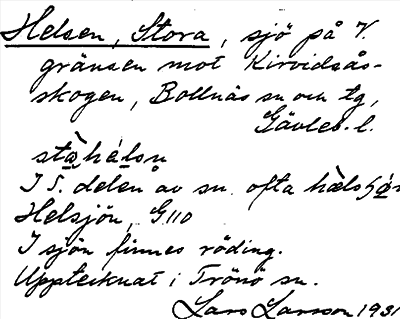 Helsen, Stora, sjö på V.
gränsen mot Kirvidsås-
skogen, Bollnäs sn och tg,
Gävleb. l.
I S. delen av sn. ofta
Helsjön, G110
I sjön finnes röding.
Uppteiknat i Trönö sn.
Lars Larsson 1931